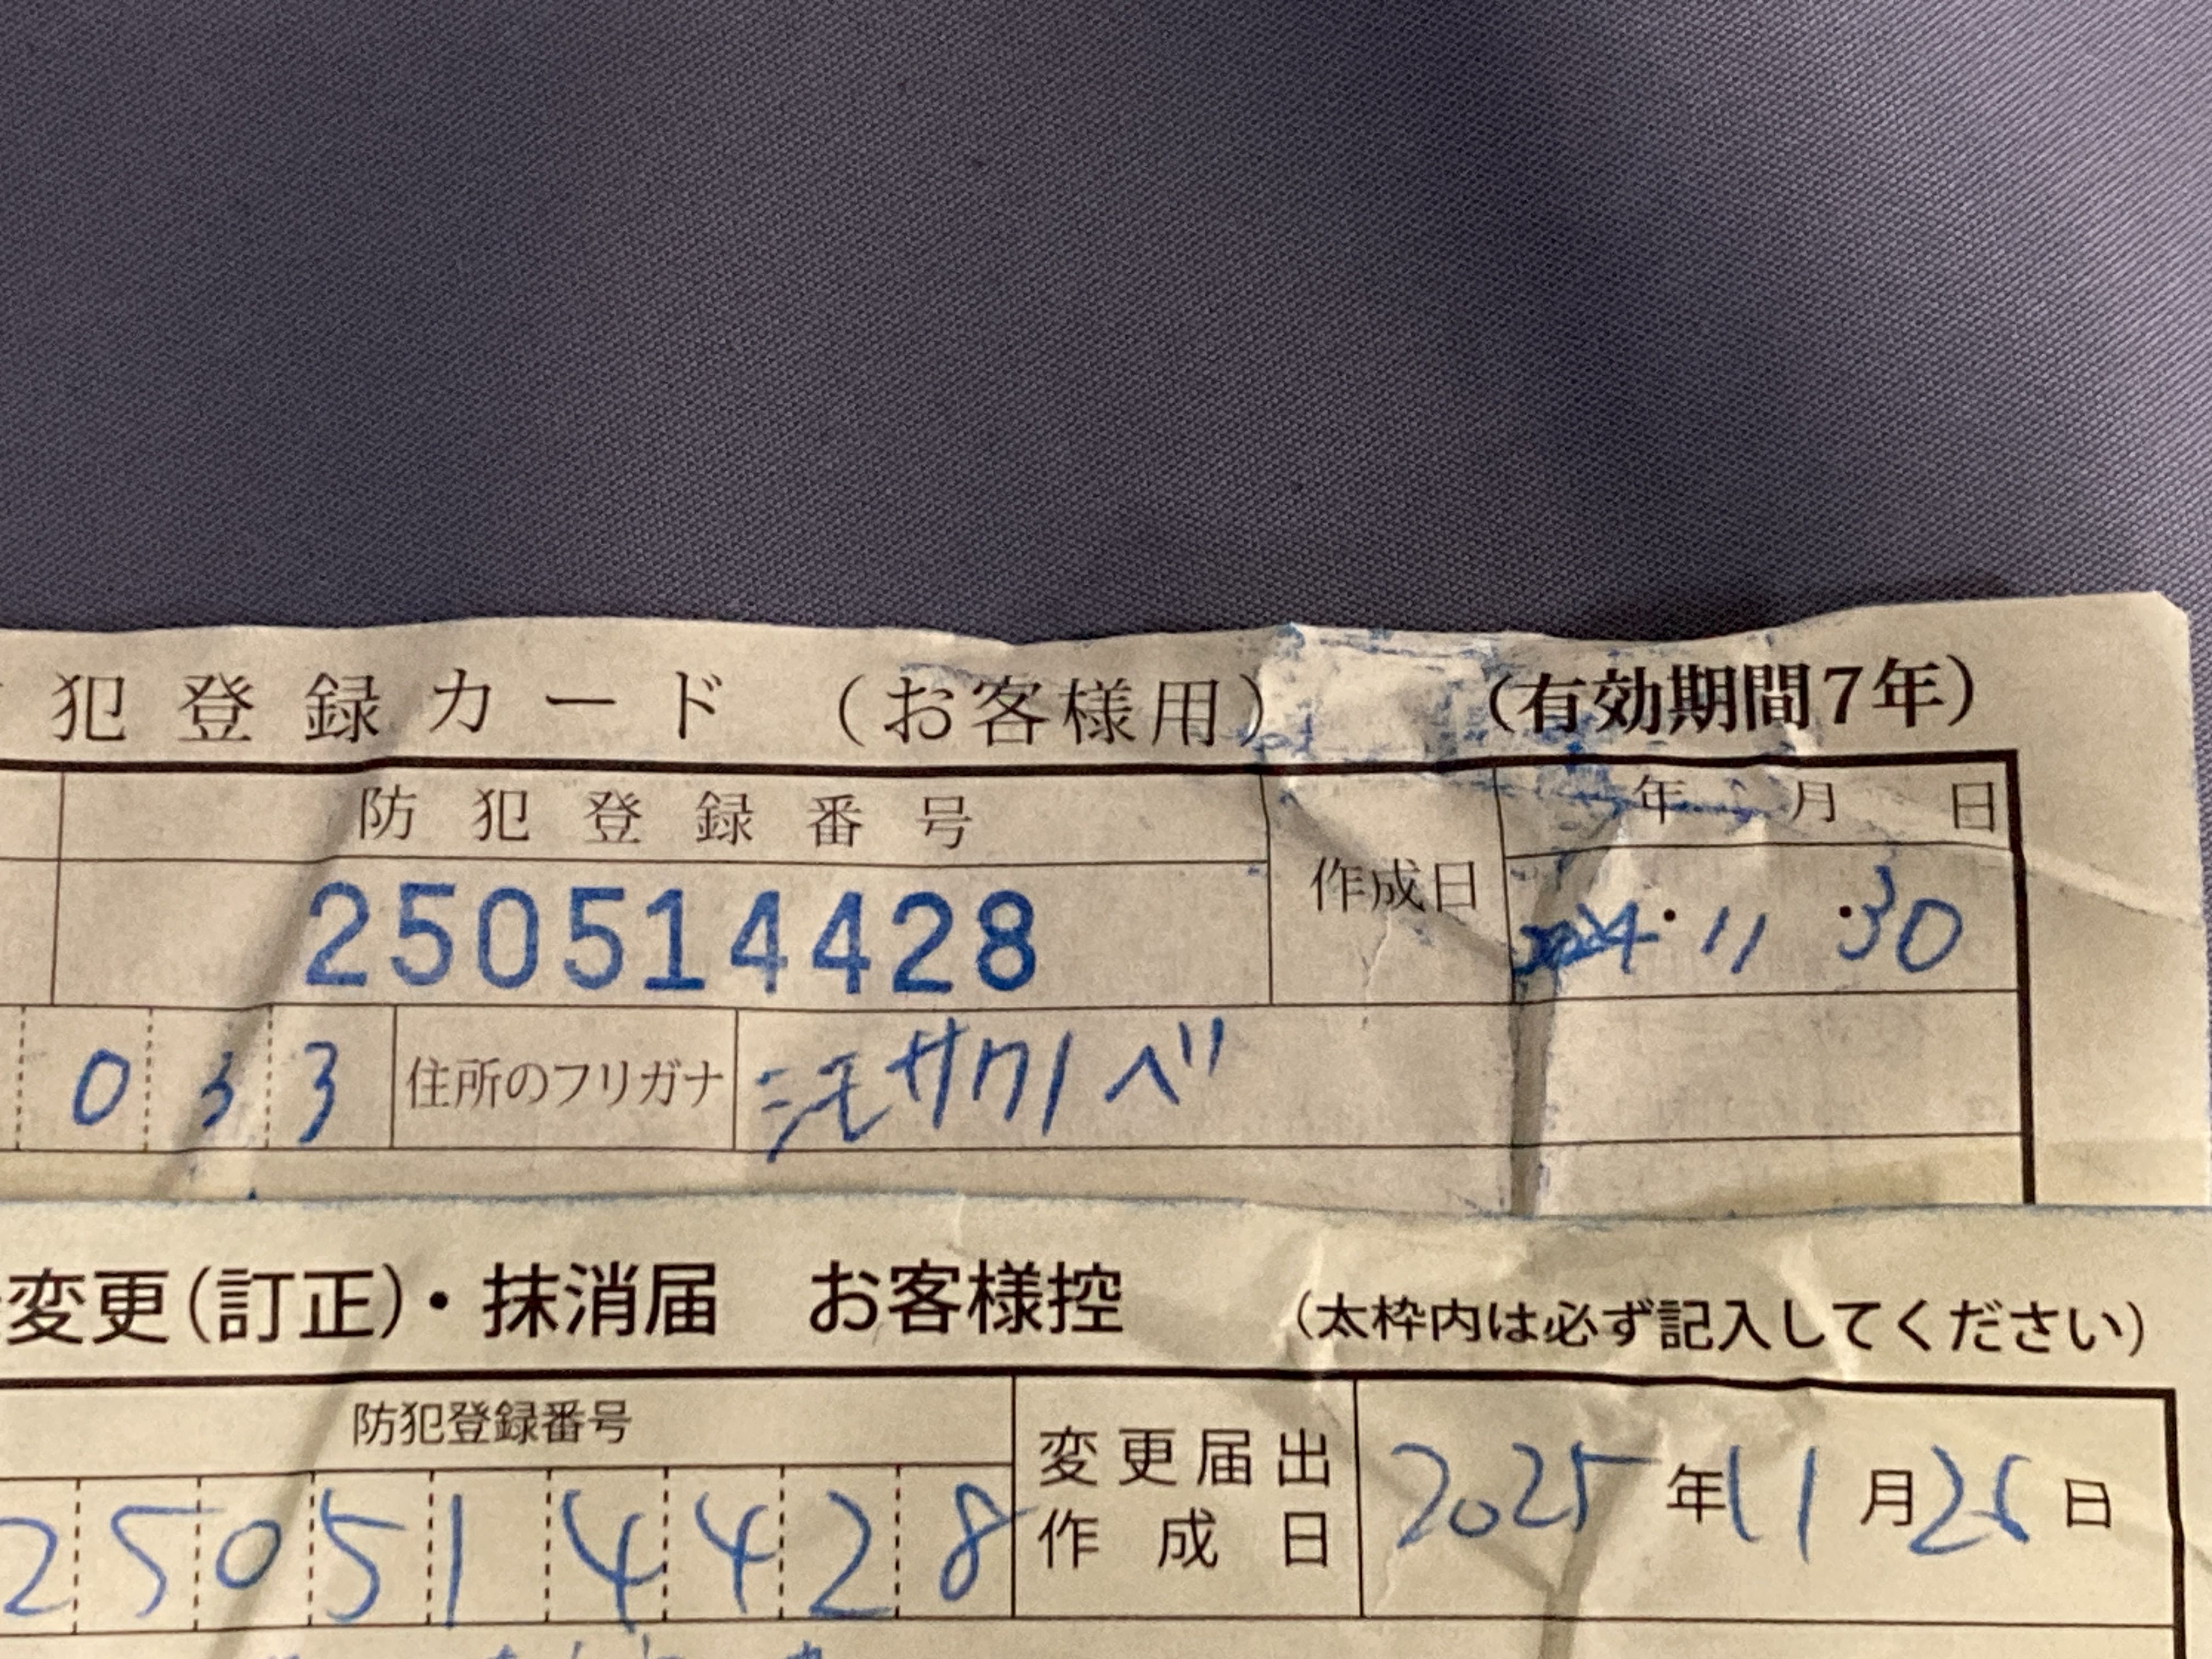 犯登録カード（お客様用）（有効期間7年）
防犯登録番号
年 月 日
作成日
250514428
2024・11・30
0 3 3
住所のフリガナ
変更（訂正）・抹消届 お客様控 （太枠内は必ず記入してください）
防犯登録番号
変更届出作成日
2025年11月26日
250514428